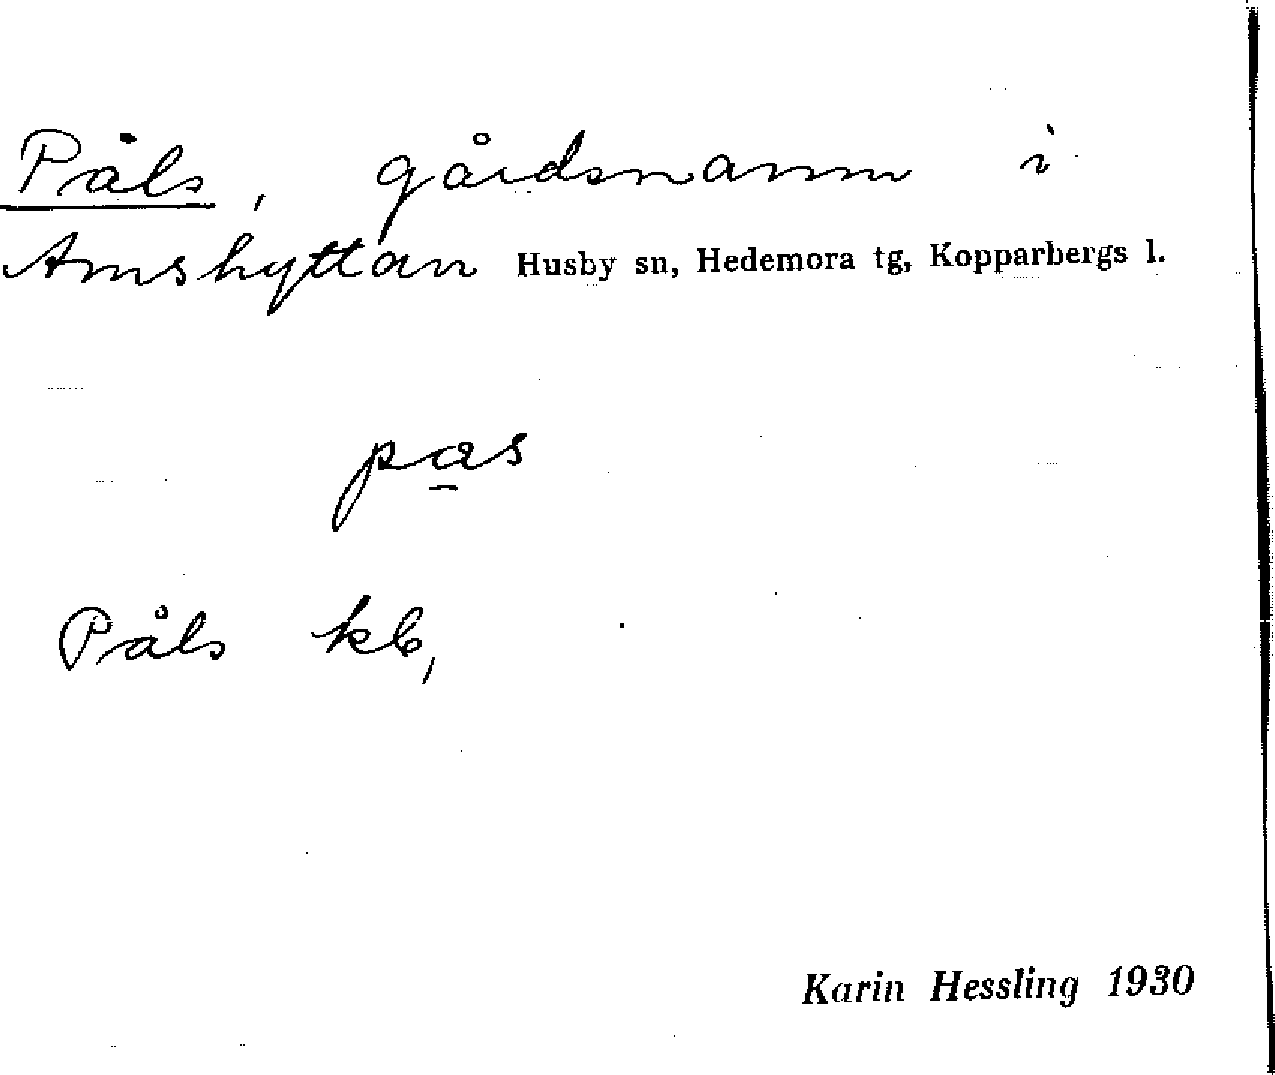 Påls, gårdsnamn i
Amshyttan Husby sn, Hedemora tg, Kopparbergs l.
pa̲s
Påls kb,
Karin Hessling 1930